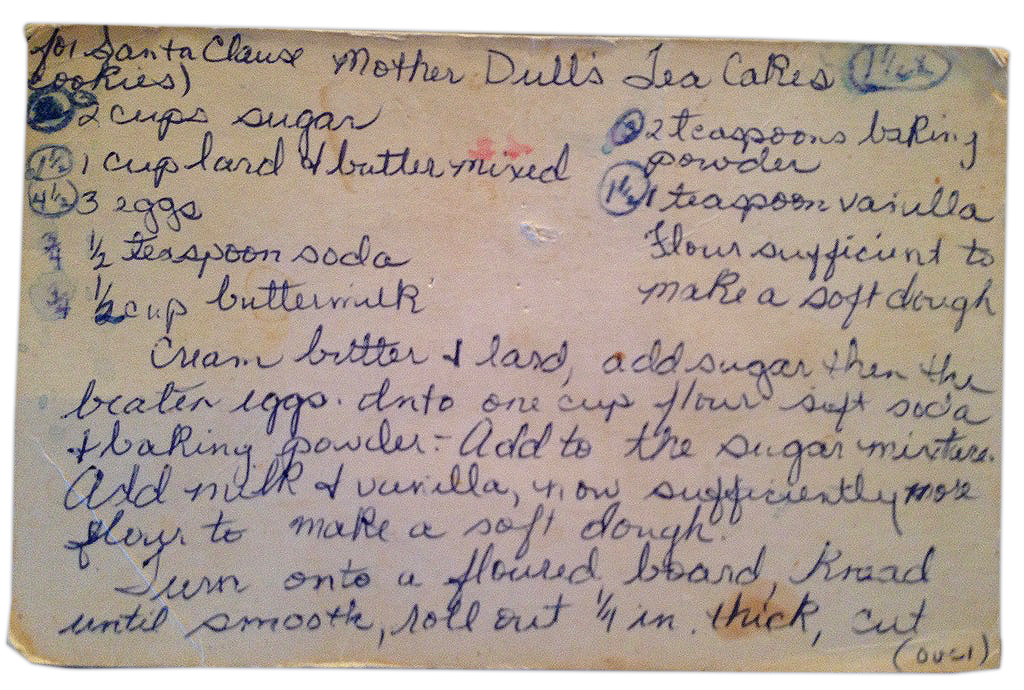 (for Santa Clause
cookies)
Mother Dull's Tea Cakes
1½ x
3
2 cups sugar
1½
1 cup lard & butter mixed
4½
3 eggs
¾
½ teaspoon soda
¾
½ cup buttermilk
3
2 teaspoons baking
powder
1½
1 teaspoon vanilla
Flour sufficient to
make a soft dough
Cream butter & lard, add sugar then the
beaten eggs. Into one cup flour sift soda
& baking powder - Add to the sugar mixture.
Add milk & vanilla, now sufficiently more
flour to make a soft dough.
Turn onto a floured board, Knead
until smooth, roll out ¼ in. thick, cut
(over)